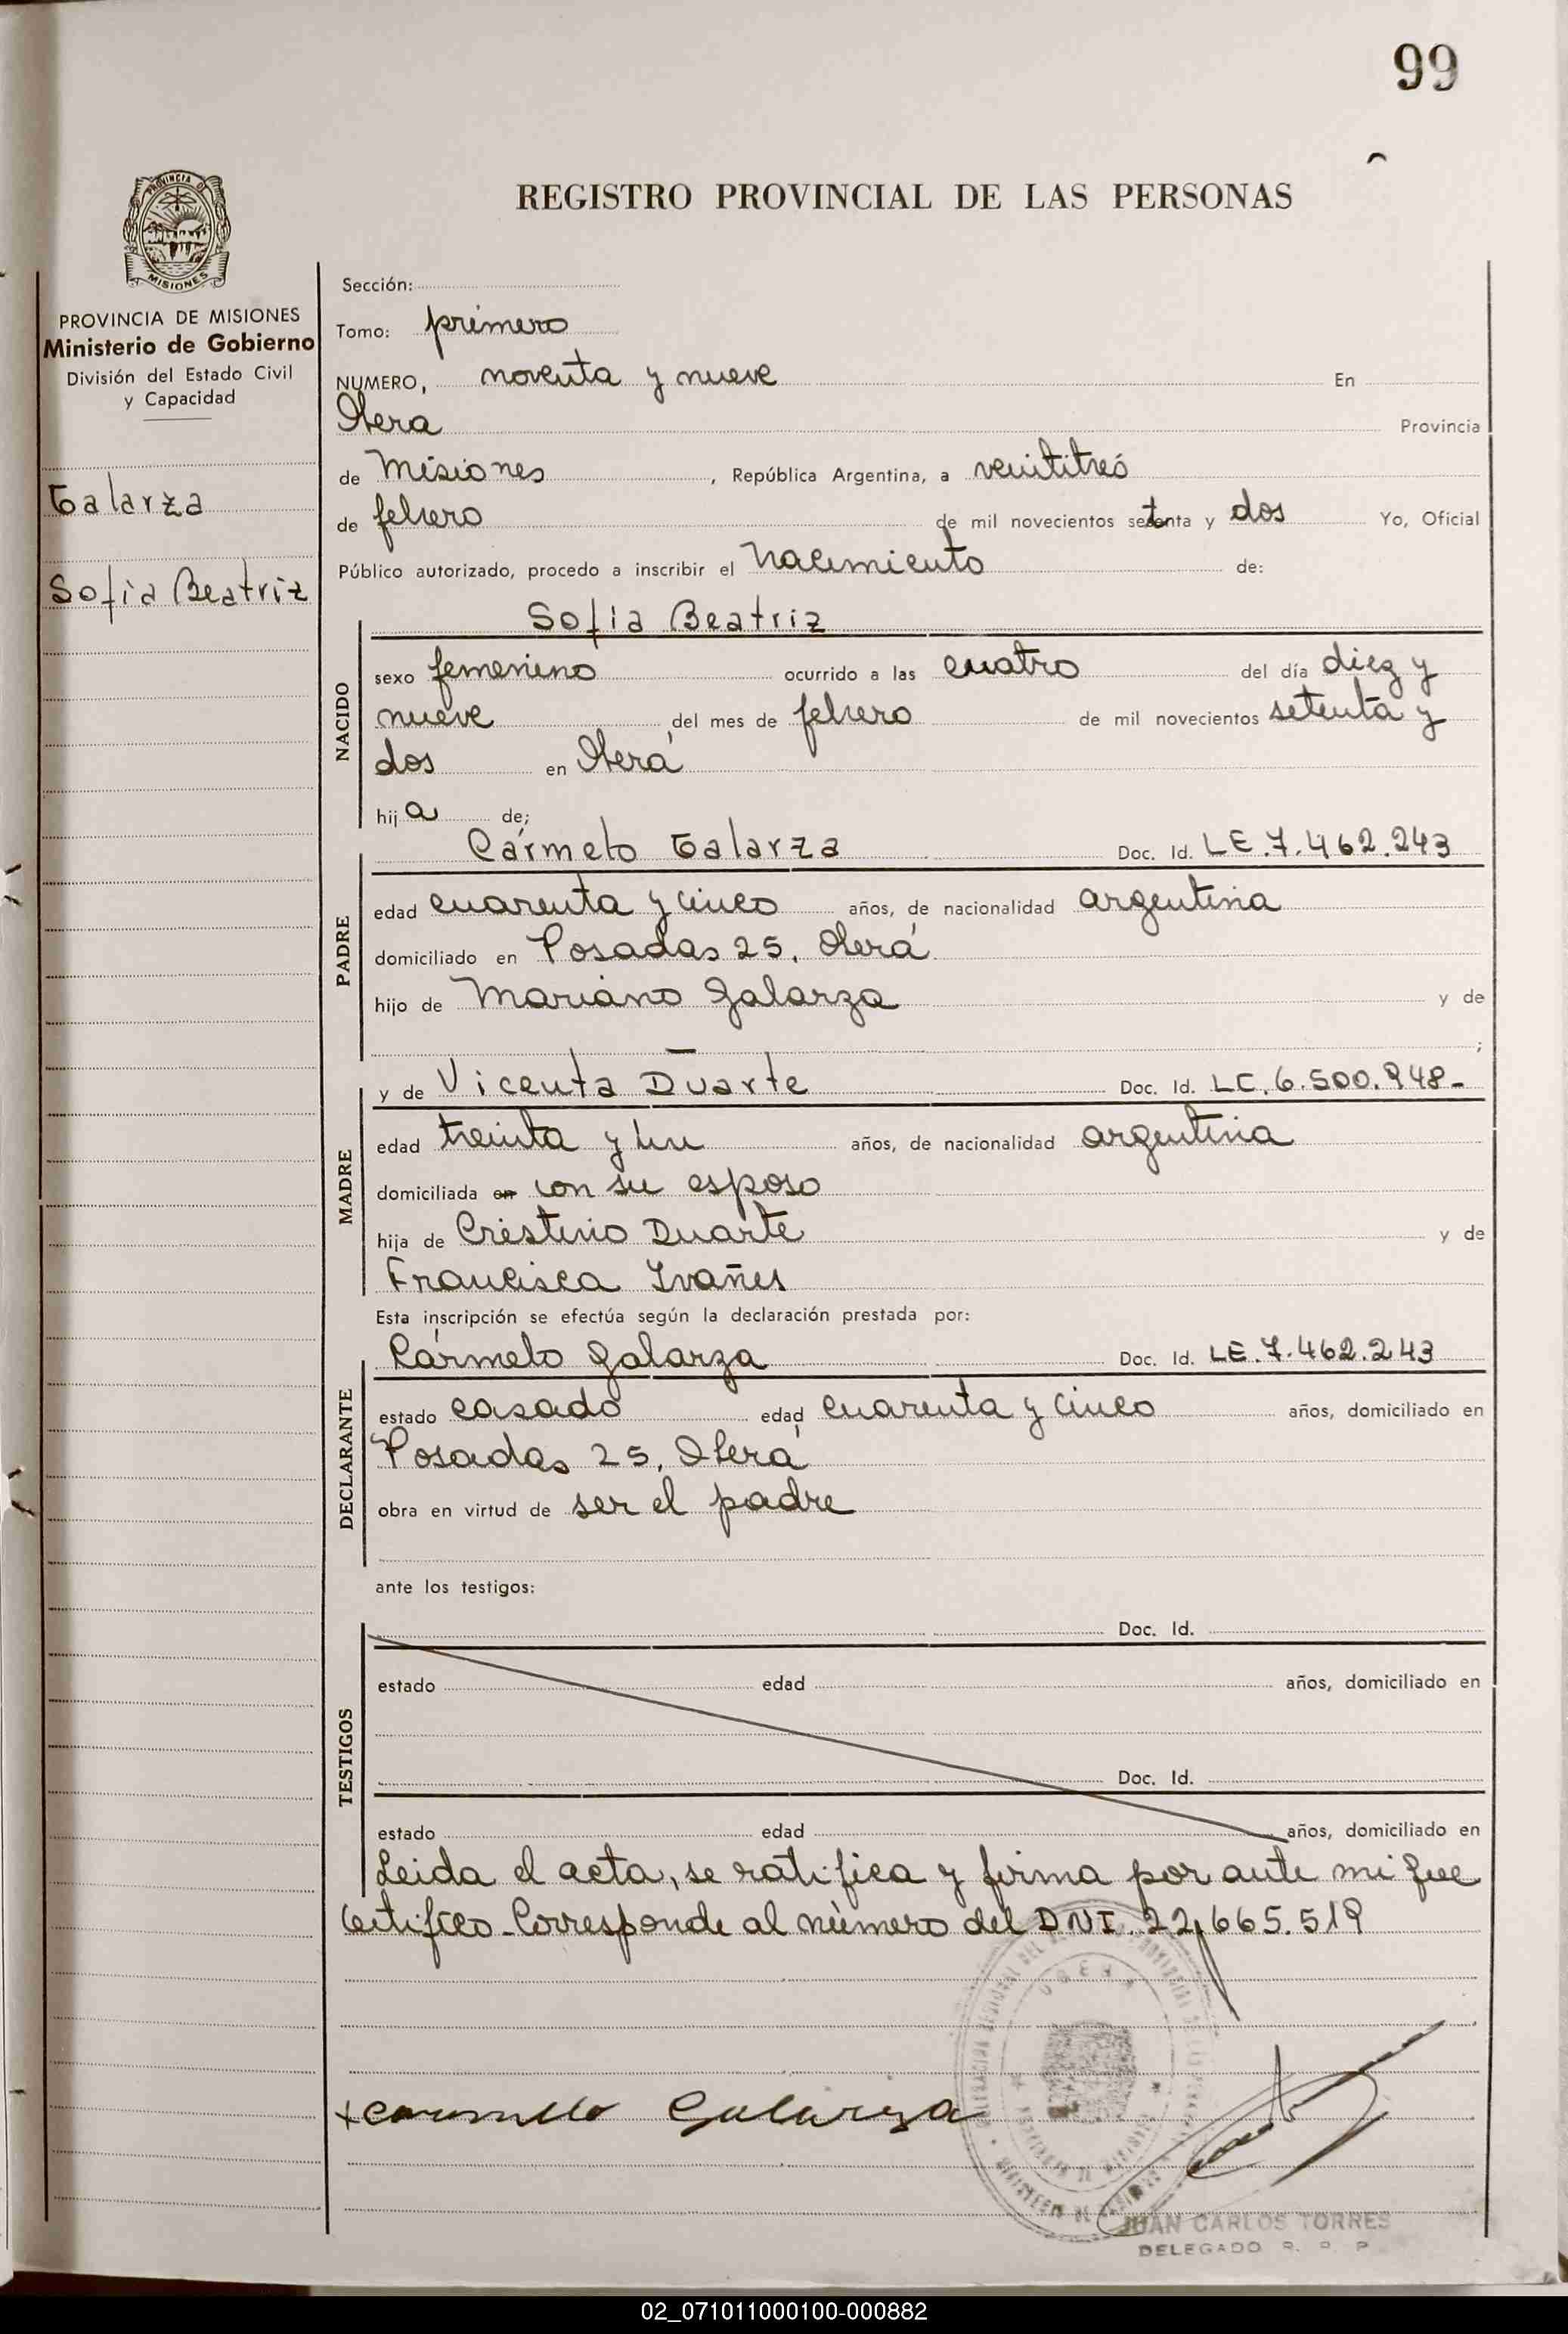 99
REGISTRO PROVINCIAL DE LAS PERSONAS
PROVINCIA DE
MISIONES
PROVINCIA DE MISIONES
Ministerio de Gobierno
División del Estado Civil
y Capacidad
Galarza
Sofia Beatriz
Sección:
Tomo: primero
NUMERO, noventa y nueve En
Obera Provincia
de Misiones, República Argentina, a veintitres
de febrero de mil novecientos setenta y dos Yo, Oficial
Público autorizado, procedo a inscribir el nacimiento de:
Sofia Beatriz
NACIDO
sexo femenino ocurrido a las cuatro del día diez y
nueve del mes de febrero de mil novecientos setenta y
dos en Oberá
hija de;
Cármelo Galarza Doc. Id. LE.7.462.243
PADRE
edad cuarenta y cinco años, de nacionalidad argentina
domiciliado en Posadas 25, Oberá
hijo de Mariano Galarza y de
— ;
y de Vicenta Duarte Doc. Id. LC.6.500.948-
MADRE
edad treinta y un años, de nacionalidad argentina
domiciliada en con su esposo
hija de Cristino Duarte y de
Francisca Ivañes
Esta inscripción se efectúa según la declaración prestada por:
Cármelo Galarza Doc. Id. LE.7.462.243
DECLARANTE
estado casado edad cuarenta y cinco años, domiciliado en
Posadas 25, Oberá
obra en virtud de ser el padre
ante los testigos:
TESTIGOS
Doc. Id.
estado edad años, domiciliado en
Doc. Id.
estado edad años, domiciliado en
Leida el acta, se ratifica y firma por ante mi que
Certifico-Corresponde al número del DNI.22.665.519
OBERA
Carmelo Galarza
JUAN CARLOS TORRES
DELEGADO R. P. P.
02_071011000100-000882